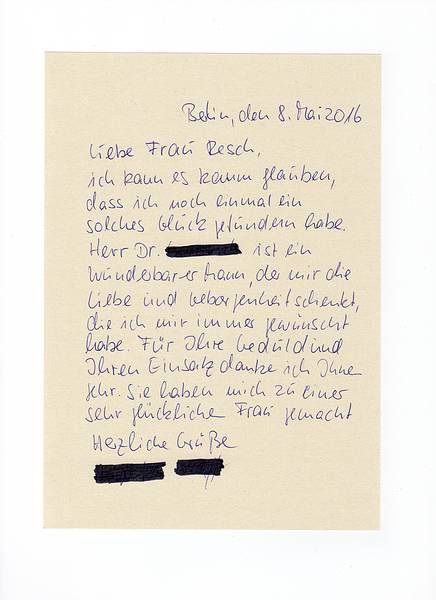 Berlin, den 8. Mai 2016
Liebe Frau Resch,
ich kann es kaum glauben,
dass ich noch einmal ein
solches Glück gefunden habe.
Herr Dr. ist ein
wunderbarer Mann, der mir die
Liebe und Geborgenheit schenkt,
die ich mir immer gewünscht
habe. Für Ihre Geduld und
Ihren Einsatz danke ich Ihnen
sehr. Sie haben mich zu einer
sehr glücklichen Frau gemacht
Herzliche Grüße